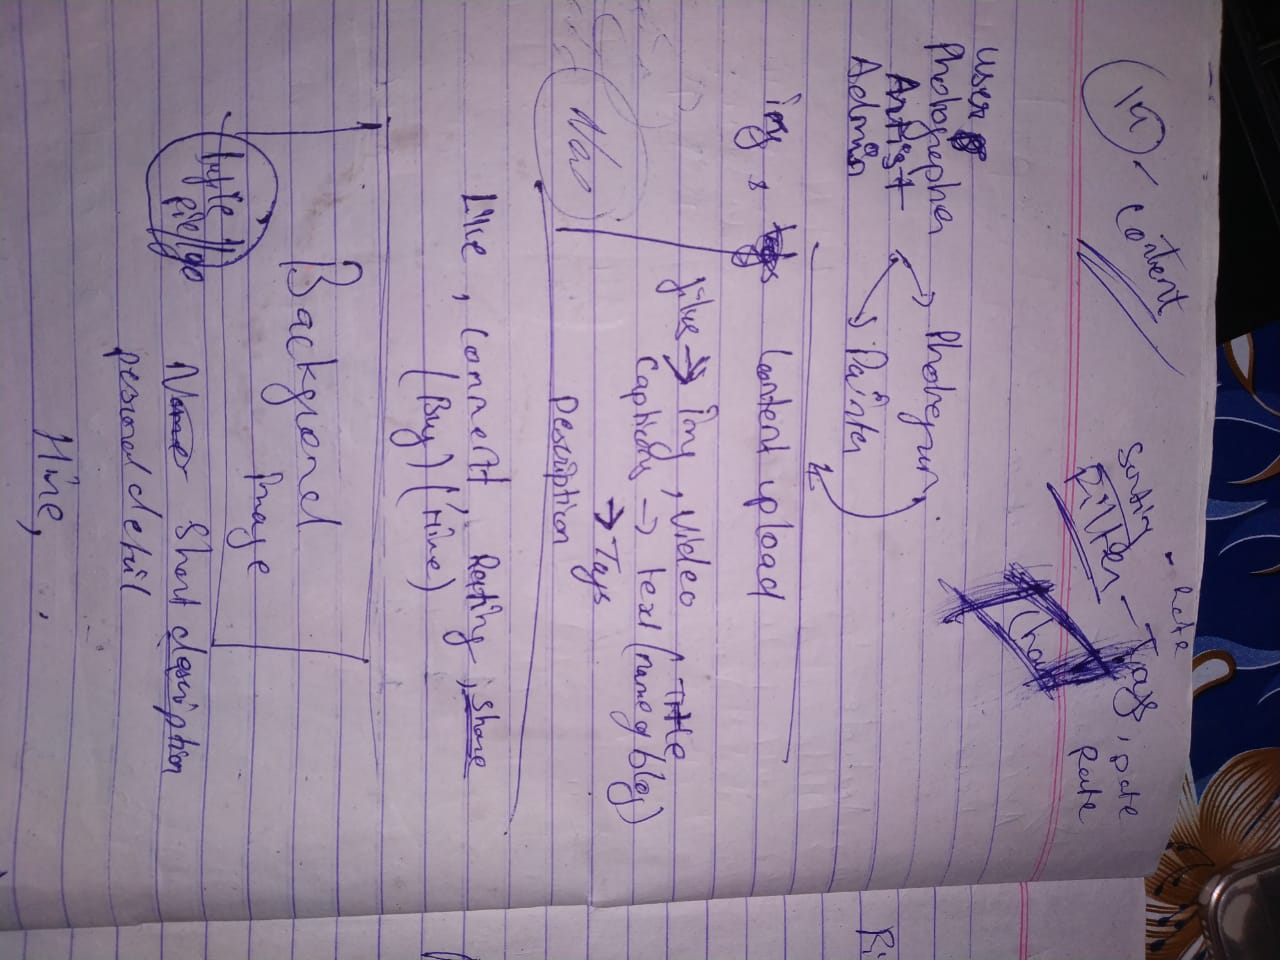 Content
Rate
Sorting
Filter - Tags, Date
Rate
User
Photographer
Artist
Admin
Painter
img, tags Content upload
files → img, video Title
Captions → text (name of blog)
→ Tags
Description
Like, Comment, Rating, Share
(Buy) (Hire)
Background
image
Name Short description
personal detail
Hire,